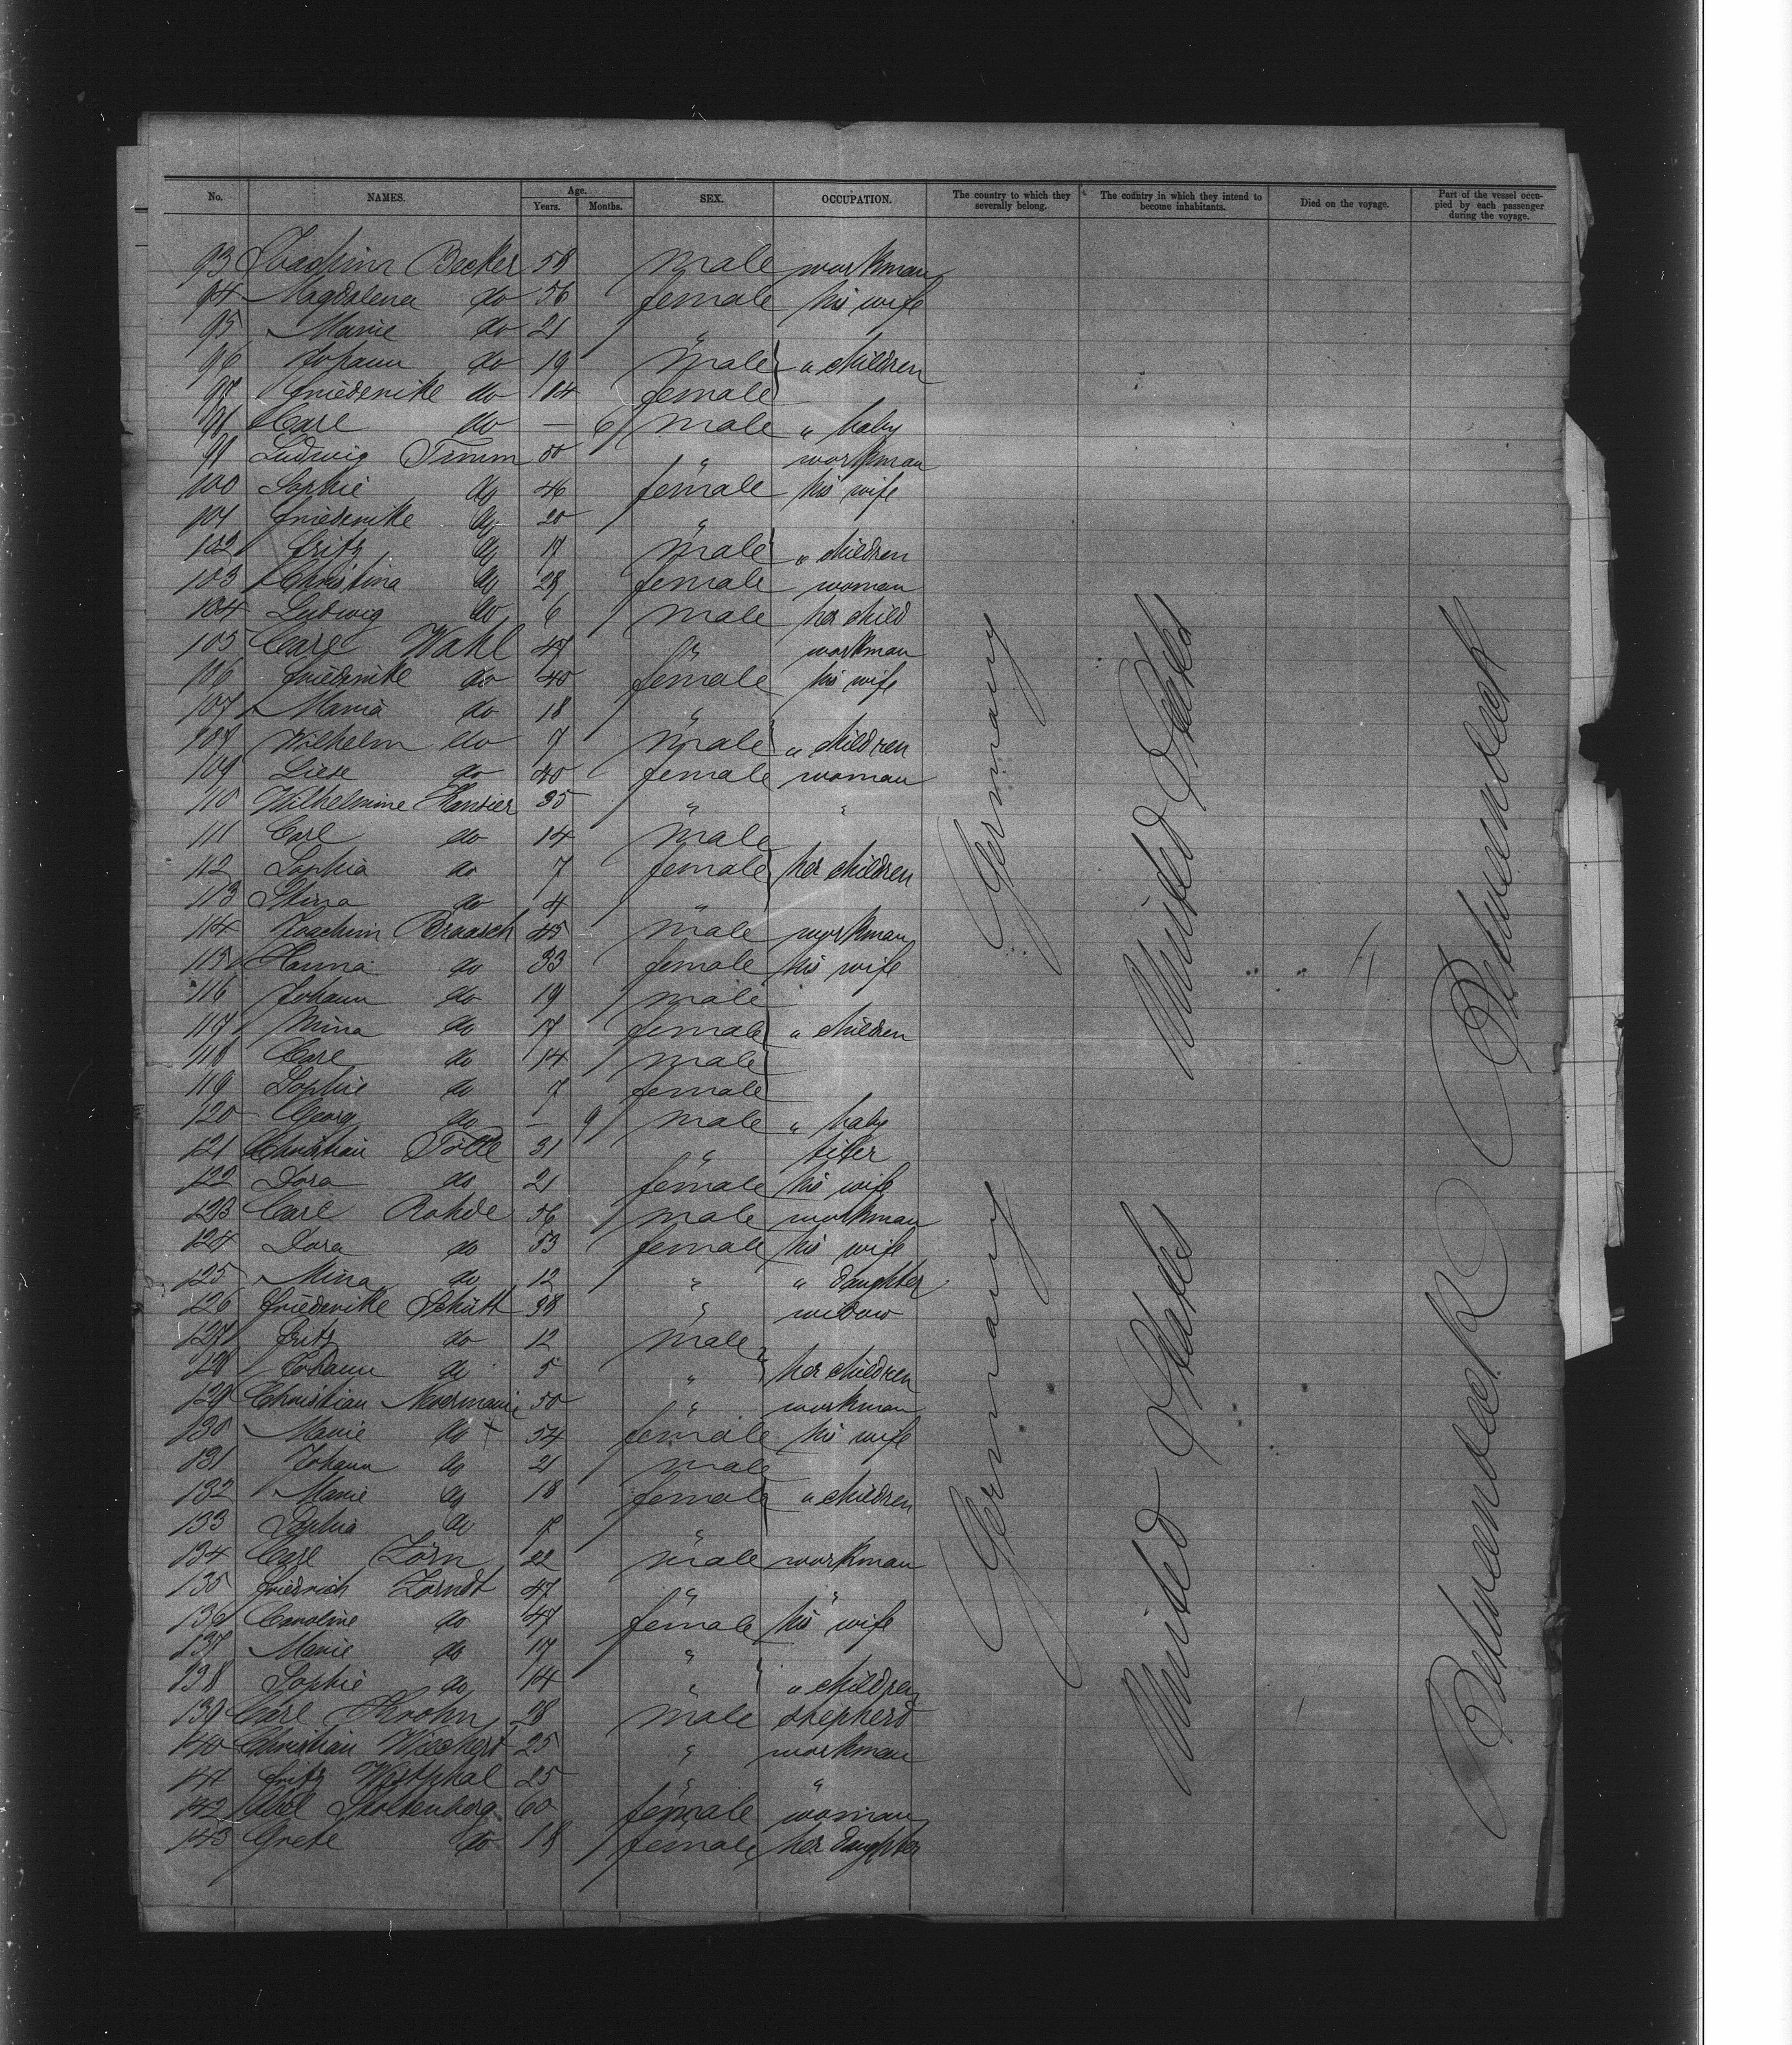 No. NAMES. Age. Years. Months. SEX. OCCUPATION. The country to which they severally belong. The country in which they intend to become inhabitants. Died on the voyage. Part of the vessel occupied by each passenger during the voyage.
93 Joachim Becker 58 male workman
94 Magdalena do 56 female his wife
95 Marie do 21 "
96 Johann do 19 male " children
97 Friederike do 14 female
98 Carl do — 6 male " baby
99 Ludwig Timm 50 " workman
100 Sophie do 46 female his wife
101 Friederike do 20 "
102 Fritz do 17 male " children
103 Christina do 28 female woman
104 Ludwig do 6 male her child
105 Carl Wahl 47 " workman
106 Friederike do 40 female his wife
107 Maria do 18 "
108 Wilhelm do 7 male " children
109 Liese do 40 female woman
110 Wilhelmine 35 " "
111 Carl do 14 male
112 Sophia do 7 female her children
113 Stina do 4 "
114 Joachim Braasch 45 male workman
115 Hanna do 33 female his wife
116 Johann do 19 male
117 Mina do 17 female " children
118 Carl do 14 male
119 Sophie do 7 female
120 Georg do — 9 male " baby
121 Christian 31 "
122 Dora do 21 female his wife
123 Carl Rohde 56 male workman
124 Dora do 53 female his wife
125 Mina do 12 " " daughter
126 Friederike Schütt 38 " widow
127 Fritz do 12 male
128 Johann do 5 " her children
129 Christian Nevermann 50 " workman
130 Marie do 54 female his wife
131 Johann do 21 male
132 Marie do 18 female " children
133 Sophia do 7 "
134 Carl Zorn 22 male workman
135 Friedrich Zorndt 47 " "
136 Caroline do 47 female his wife
137 Marie do 17 "
138 Sophie do 14 " " children
139 Carl Krohn 28 male shepherd
140 Christian Wiechert 25 " workman
141 Fritz Westphal 25 " "
142 Stoltenberg 60 female woman
143 Grete do 18 female her daughter
Germany
Germany
United States
United States
Betweendeck
Betweendeck